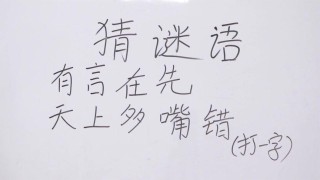 猜谜语
有言在先
天上多嘴错
(打一字)